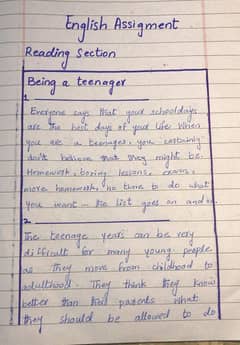 English Assigment
Reading Section
Being a teenager
1.
Everyone says that your schooldays
are the best days of your life. When
you are a teenager, you certainly
don't believe that they might be.
Homework, boring lessons, exams,
more homework, no time to do what
you want - the list goes on and on.
2.
The teenage years can be very
difficult for many young people
as they move from childhood to
adulthood. They think they know
better than their parents what
they should be allowed to do